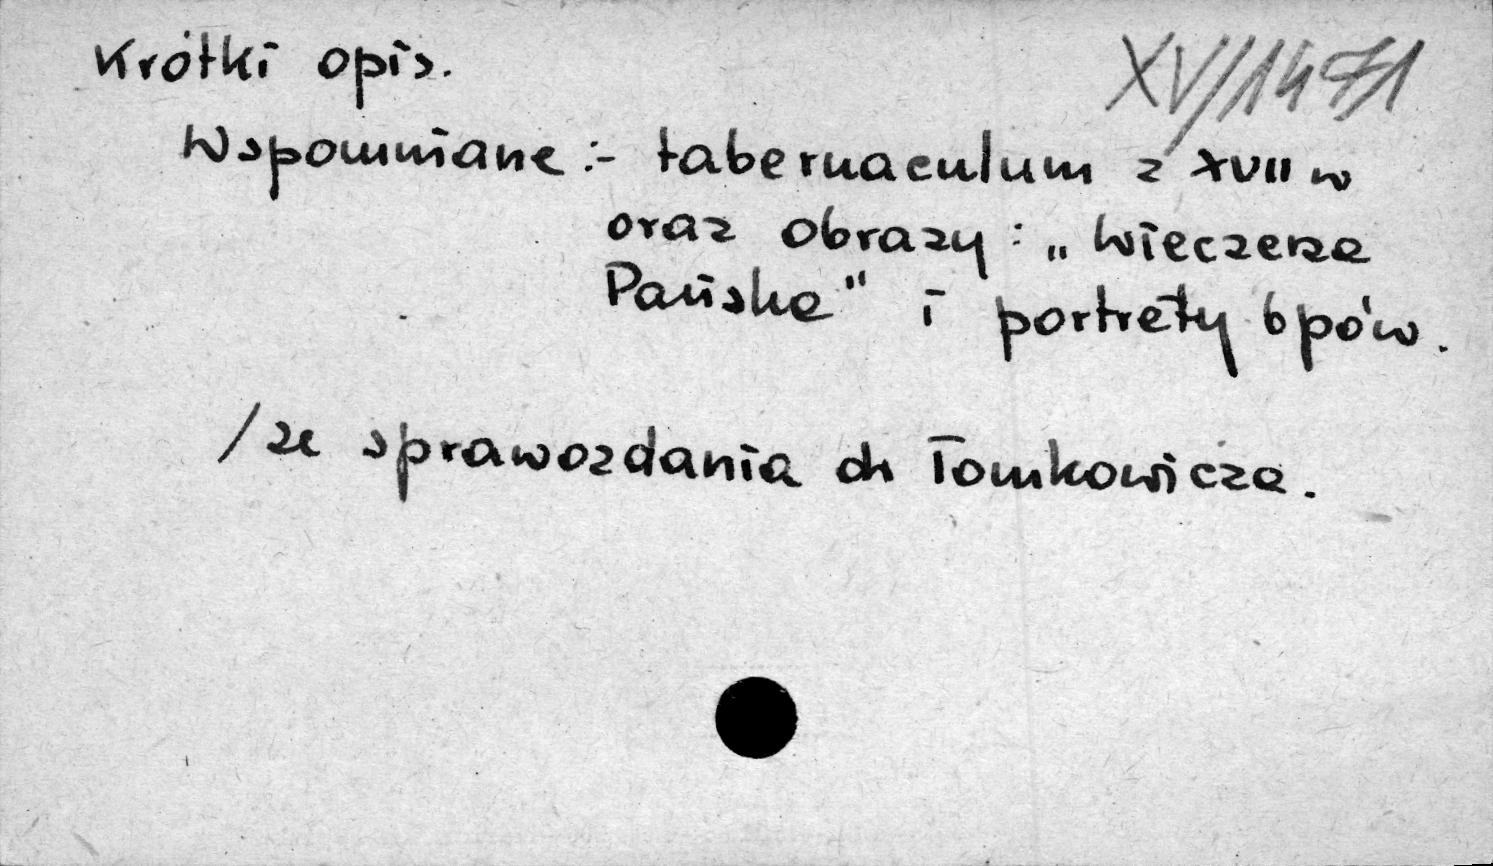 Krótki opis.
XV/1471
Wspomniane :- tabernaculum z XVII w
oraz obrazy : „Wieczerza
Pańska" i portrety bpów.
/ze sprawozdania dr Tomkowicza.